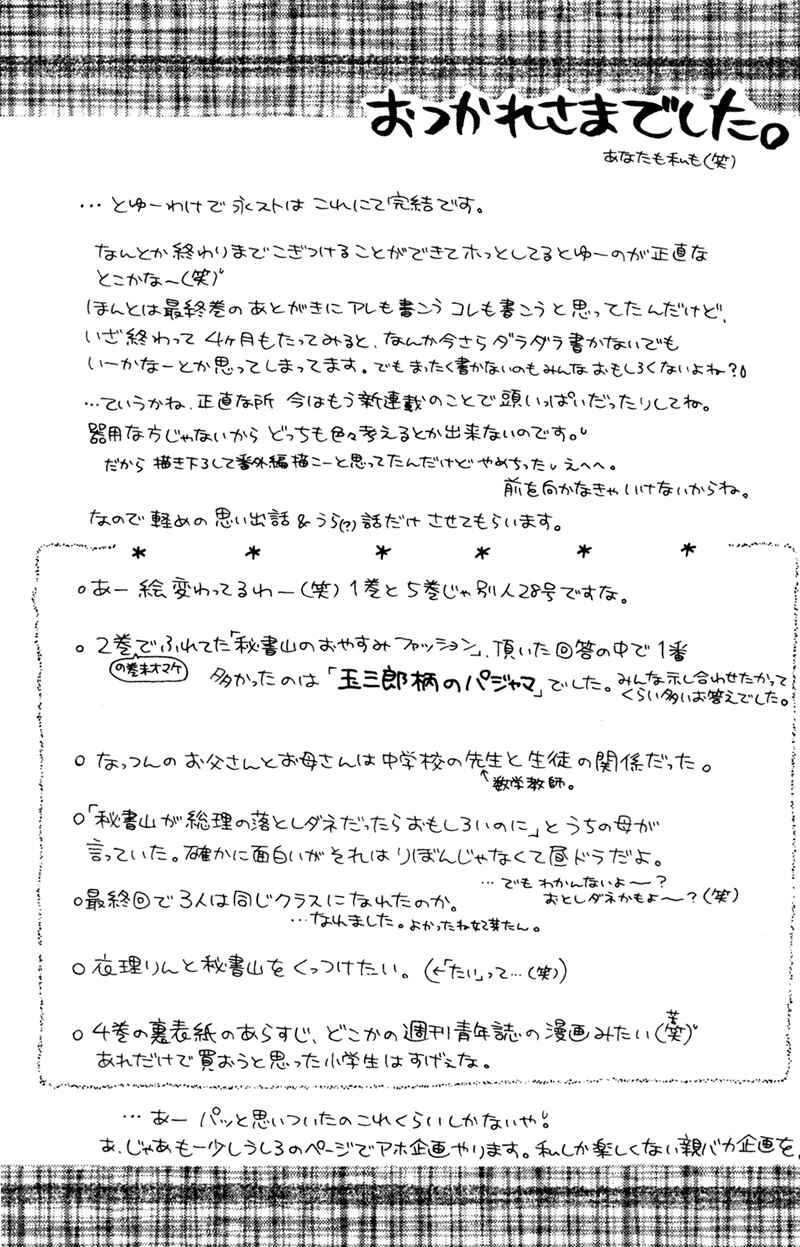 おつかれさまでした。
あなたも私も(笑)
…とゆーわけで永ストはこれにて完結です。
なんとか終わりまでこぎつけることができてホっとしてるとゆーのが正直な
とこかな〜(笑)
ほんとは最終巻のあとがきにアレも書こうコレも書こうと思ってたんだけど、
いざ終わって4ヶ月もたってみると、なんか今さらダラダラ書かないでも
いーかなーとか思ってしまってます。でもまったく書かないのもみんなおもしろくないよね?
…ていうかね、正直な所 今はもう新連載のことで頭いっぱいだったりしてね。
器用な方じゃないからどっちも色々考えるとか出来ないのです。
だから描き下ろして番外編描こーと思ってたんだけどやめちった。えへへ。
前を向かなきゃいけないからね。
なので軽めの思い出話&うら(?)話だけさせてもらいます。
* * * * * *
○あー絵変わってるわー(笑)1巻と5巻じゃ別人28号ですな。
○2巻でふれてた「秘書山のおやすみファッション」、頂いた回答の中で1番
の巻末オマケ
多かったのは「玉三郎柄のパジャマ」でした。みんな示し合わせたかって
くらい多いお答えでした。
○なっつんのお父さんとお母さんは中学校の先生と生徒の関係だった。
↑数学教師。
○「秘書山が総理の落としダネだったらおもしろいのに」とうちの母が
言っていた。確かに面白いがそれはりぼんじゃなくて昼ドラだよ。
…でもわかんないよ〜?
おとしダネかもよ〜?(笑)
○最終回で3人は同じクラスになれたのか。
…なれました。よかったね妃芽たん。
○夜理りんと秘書山をくっつけたい。(←「たい」って…(笑))
○4巻の裏表紙のあらすじ、どこかの週刊青年誌の漫画みたい(苦笑)
あれだけで買おうと思った小学生はすげぇな。
…あー パッと思いついたのこれくらいしかないや。
あ、じゃあも一少しうしろのページでアホ企画やります。私しか楽しくない親バカ企画を。